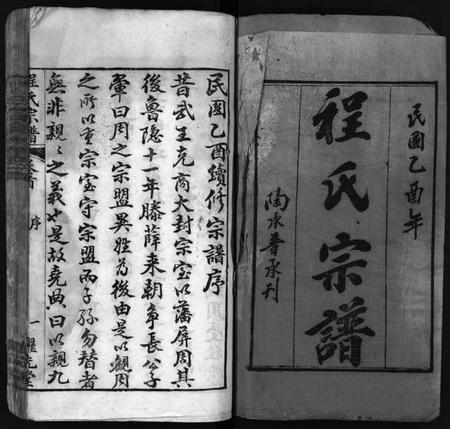 民國乙酉年
程氏宗譜
陶承普承刊
民國乙酉續修宗譜序
昔武王克商大封宗室以藩屏周其
後魯隱十一年滕薛来朝争長公子
翬曰周之宗盟異姓為後由是以觀周
之所以重宗室守宗盟而子孫勿替者
無非親之之義也是故堯典曰以親九
程氏宗譜
卷首
序
一